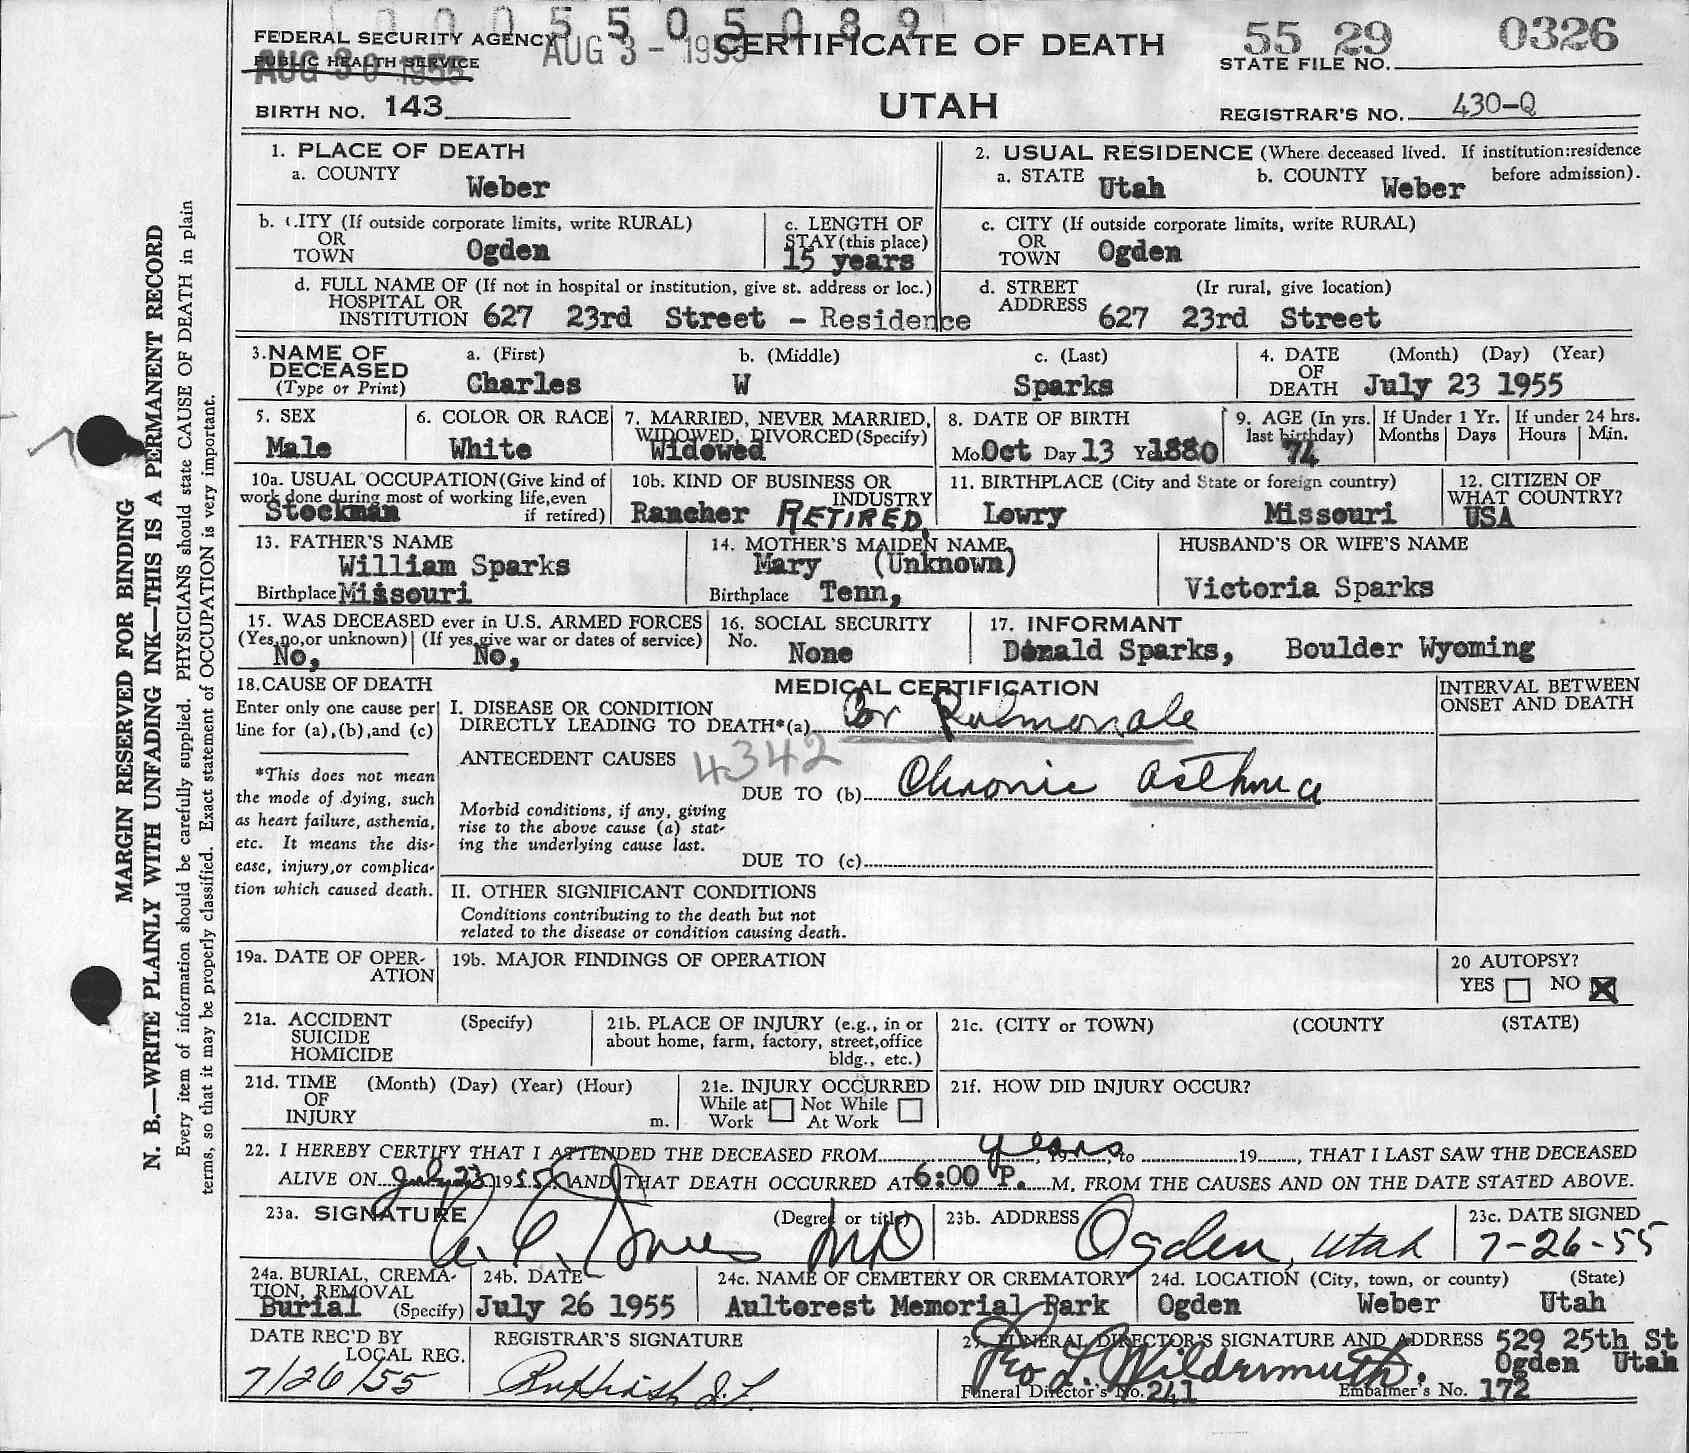 0 0 0 5 5 0 5 0 8 9
FEDERAL SECURITY AGENCY AUG 3 - 1955 CERTIFICATE OF DEATH 55 29 0326
PUBLIC HEALTH SERVICE AUG 30 1955 STATE FILE NO.
BIRTH NO. 143 UTAH REGISTRAR'S NO. 430-Q
MARGIN RESERVED FOR BINDING
N. B.—WRITE PLAINLY WITH UNFADING INK—THIS IS A PERMANENT RECORD
Every item of information should be carefully supplied. PHYSICIANS should state CAUSE OF DEATH in plain
terms, so that it may be properly classified. Exact statement of OCCUPATION is very important.
1. PLACE OF DEATH
a. COUNTY Weber
2. USUAL RESIDENCE (Where deceased lived. If institution:residence
a. STATE Utah b. COUNTY Weber before admission).
b. CITY (If outside corporate limits, write RURAL)
OR
TOWN Ogden
c. LENGTH OF
STAY(this place)
15 years
c. CITY (If outside corporate limits, write RURAL)
OR
TOWN Ogden
d. FULL NAME OF (If not in hospital or institution, give st. address or loc.)
HOSPITAL OR
INSTITUTION 627 23rd Street - Residence
d. STREET (Ir rural, give location)
ADDRESS 627 23rd Street
3.NAME OF
DECEASED
(Type or Print)
a. (First) b. (Middle) c. (Last)
Charles W Sparks
4. DATE (Month) (Day) (Year)
OF
DEATH July 23 1955
5. SEX
Male
6. COLOR OR RACE
White
7. MARRIED, NEVER MARRIED,
WIDOWED, DIVORCED(Specify)
Widowed
8. DATE OF BIRTH
Mo. Oct Day 13 Yr 1880
9. AGE (In yrs.
last birthday)
74
If Under 1 Yr.
Months Days
If under 24 hrs.
Hours Min.
10a. USUAL OCCUPATION(Give kind of
work done during most of working life,even
if retired)
Stockman
10b. KIND OF BUSINESS OR
INDUSTRY
Rancher RETIRED
11. BIRTHPLACE (City and State or foreign country)
Lowry Missouri
12. CITIZEN OF
WHAT COUNTRY?
USA
13. FATHER'S NAME
William Sparks
Birthplace Missouri
14. MOTHER'S MAIDEN NAME
Mary (Unknown)
Birthplace Tenn,
HUSBAND'S OR WIFE'S NAME
Victoria Sparks
15. WAS DECEASED ever in U.S. ARMED FORCES
(Yes,no,or unknown) (If yes,give war or dates of service)
No, No,
16. SOCIAL SECURITY
No. None
17. INFORMANT
Donald Sparks, Boulder Wyoming
18.CAUSE OF DEATH
Enter only one cause per
line for (a),(b),and (c)
*This does not mean
the mode of dying, such
as heart failure, asthenia,
etc. It means the dis-
ease, injury,or complica-
tion which caused death.
MEDICAL CERTIFICATION
I. DISEASE OR CONDITION
DIRECTLY LEADING TO DEATH*(a) Cor Pulmonale
ANTECEDENT CAUSES 4342
DUE TO (b) Chronic asthma
Morbid conditions, if any, giving
rise to the above cause (a) stat-
ing the underlying cause last.
DUE TO (c)
INTERVAL BETWEEN
ONSET AND DEATH
II. OTHER SIGNIFICANT CONDITIONS
Conditions contributing to the death but not
related to the disease or condition causing death.
19a. DATE OF OPER-
ATION
19b. MAJOR FINDINGS OF OPERATION
20 AUTOPSY?
YES NO X
21a. ACCIDENT (Specify)
SUICIDE
HOMICIDE
21b. PLACE OF INJURY (e.g., in or
about home, farm, factory, street,office
bldg., etc.)
21c. (CITY or TOWN) (COUNTY (STATE)
21d. TIME (Month) (Day) (Year) (Hour)
OF
INJURY m.
21e. INJURY OCCURRED
While at Not While
Work At Work
21f. HOW DID INJURY OCCUR?
22. I HEREBY CERTIFY THAT I ATTENDED THE DECEASED FROM years, 19 , to 19 , THAT I LAST SAW THE DECEASED
ALIVE ON July 23 1955 AND THAT DEATH OCCURRED AT 6:00 P. M, FROM THE CAUSES AND ON THE DATE STATED ABOVE.
23a. SIGNATURE (Degree or title) MD
23b. ADDRESS Ogden, Utah
23c. DATE SIGNED
7-26-55
24a. BURIAL, CREMA-
TION, REMOVAL
Burial (Specify)
24b. DATE
July 26 1955
24c. NAME OF CEMETERY OR CREMATORY
Aultorest Memorial Park
24d. LOCATION (City, town, or county) (State)
Ogden Weber Utah
DATE REC'D BY
LOCAL REG.
7/26/55
REGISTRAR'S SIGNATURE
25. FUNERAL DIRECTOR'S SIGNATURE AND ADDRESS 529 25th St
Ogden Utah
Geo L Wildermuth.
Funeral Director's No. 241 Embalmer's No. 172